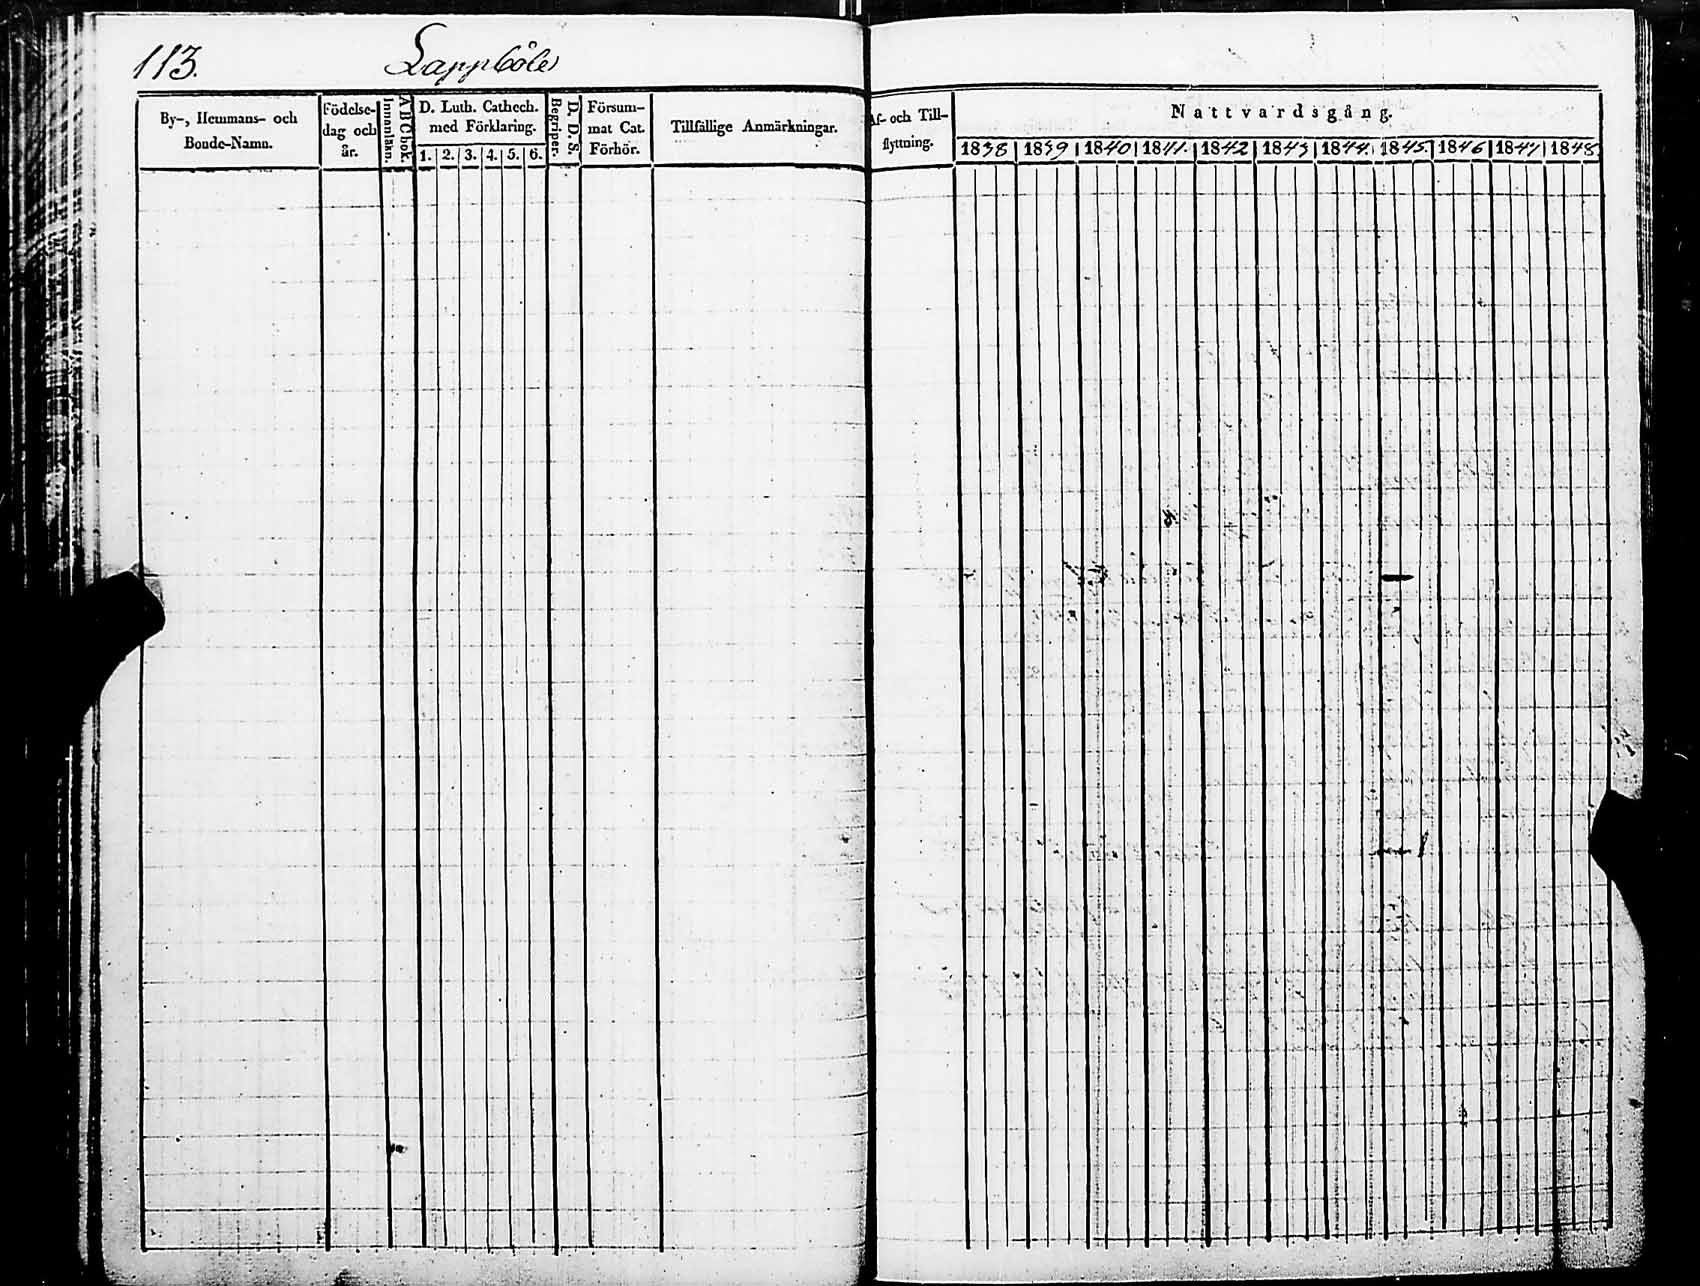 113. Lappböle
By-, Hemmans- och
Bonde-Namn.
Födelse-
dag och
år.
A B C bok.
Innanläsn.
D. Luth. Cathech.
med Förklaring.
1. 2. 3. 4. 5. 6.
D. D. S.
Begriper.
Försum-
mat Cat.
Förhör.
Tillfällige Anmärkningar.
Af- och Till-
flyttning.
Nattvardsgång.
1838 1839 1840 1841. 1842 1843 1844. 1845. 1846 1847 1848.